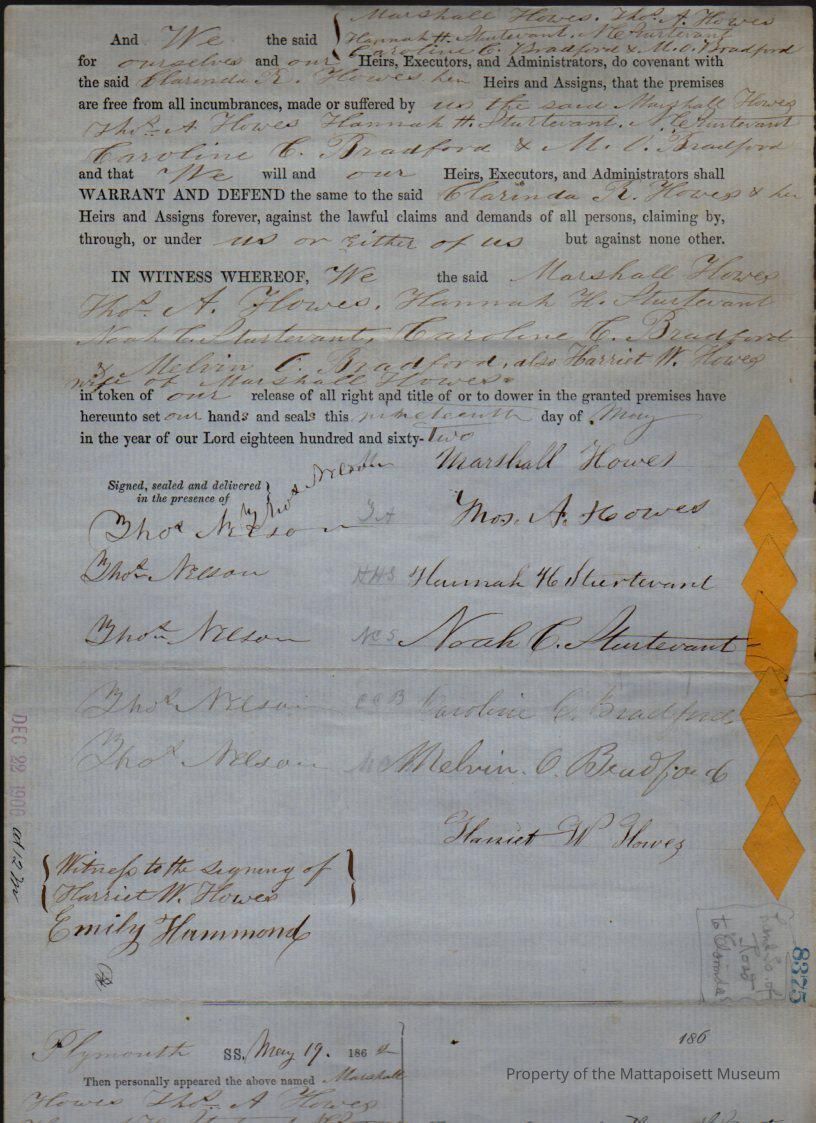 Marshall Howes. Thos. A. Howes
And We the said { Hannah H. Sturtevant. N. C. Sturtevant
Caroline C. Bradford & M. O. Bradford
for ourselves and our Heirs, Executors, and Administrators, do covenant with
the said Clarinda R. Howes her Heirs and Assigns, that the premises
are free from all incumbrances, made or suffered by us the said Marshall Howes
Thos. A Howes Hannah H. Sturtevant. N. C. Sturtevant
Caroline C. Bradford & M. O. Bradford
and that We will and our Heirs, Executors, and Administrators shall
WARRANT AND DEFEND the same to the said Clarinda R. Howes & her
Heirs and Assigns forever, against the lawful claims and demands of all persons, claiming by,
through, or under us or either of us but against none other.
IN WITNESS WHEREOF, We the said Marshall Howes
Thos. A. Howes. Hannah H. Sturtevant
Noah C. Sturtevant, Caroline C. Bradford
& Melvin O. Bradford, also Harriet W. Howes
wife of Marshall Howes
in token of our release of all right and title of or to dower in the granted premises have
hereunto set our hands and seals this nineteenth day of May
in the year of our Lord eighteen hundred and sixty-two
Marshall Howes
Signed, sealed and delivered }
in the presence of
Thos. Nelson
Thos. Nelson T A Thos. A. Howes
Thos. Nelson H H S Hannah H Sturtevant
Thos. Nelson N C S Noah C. Sturtevant
Thos. Nelson C C B Caroline C. Bradford
Thos. Nelson Melvin. O. Bradford
Harriet W Howes
DEC 22 1906
at 12 m
{ Witness to the signing of }
Harriet W. Howes
Emily Hammond
to Clarinda
8375
Plymouth SS. May 19. 186
186
Then personally appeared the above named Marshall
Howes Thos. A Howes
Property of the Mattapoisett Museum